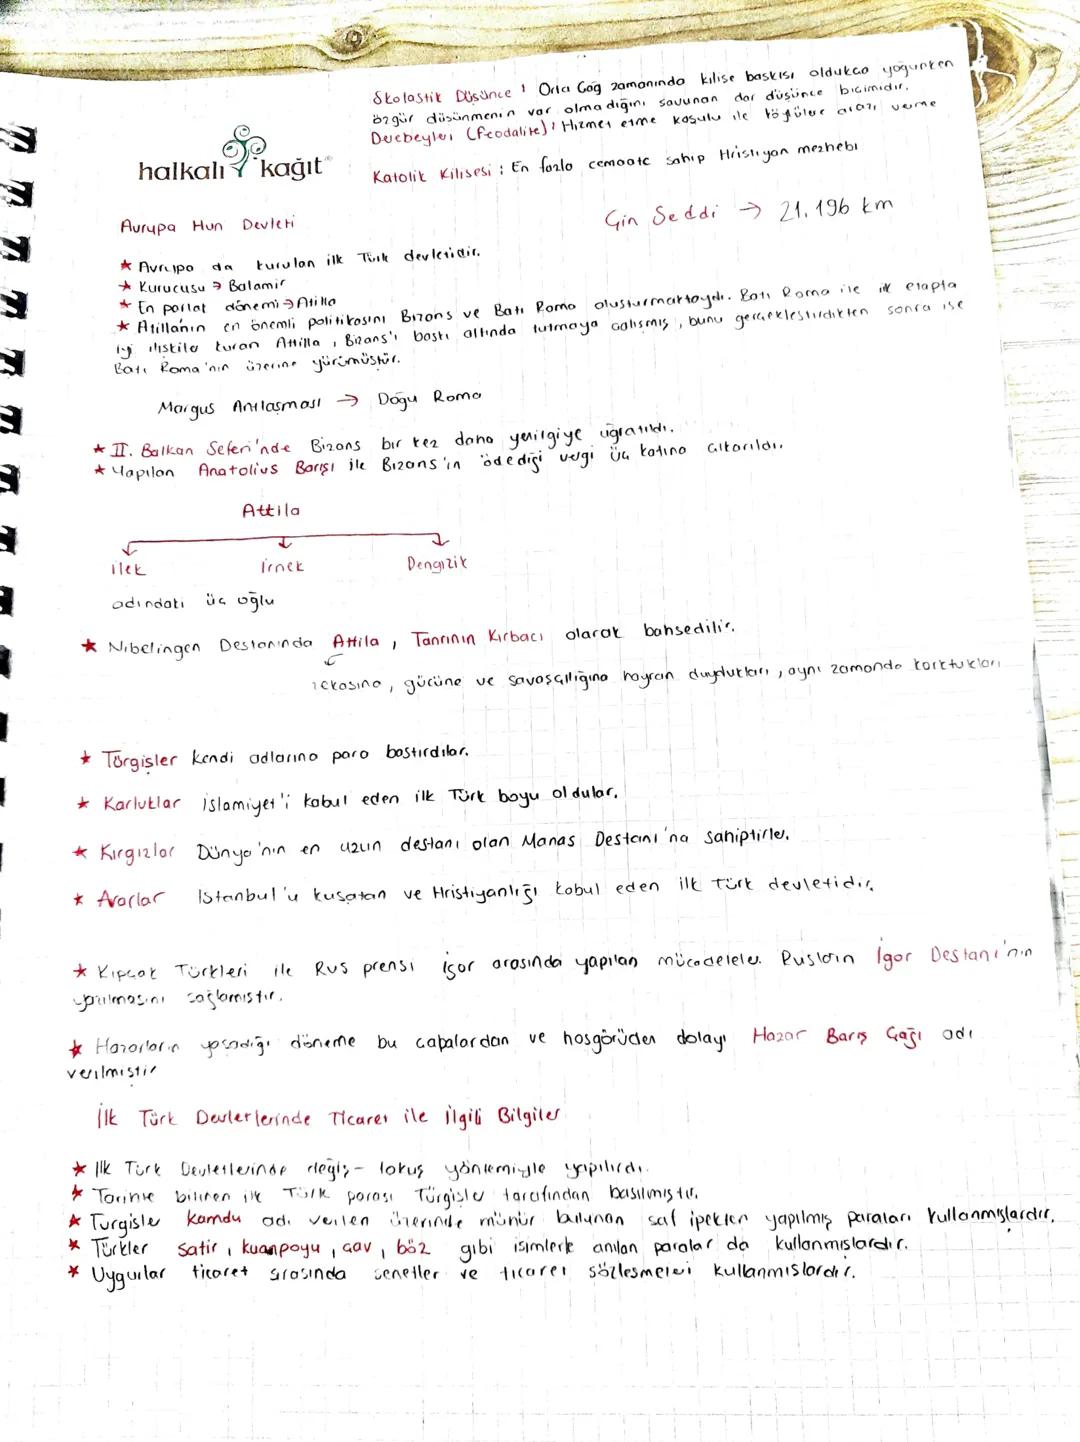 Skolastik Düşünce : Orta Çağ zamanında kilise baskısı oldukca yoğunken
özgür düşünmenin var olmadığını savunan dar düşünce biçimidir.
Derebeyler (Feodalite) : Hizmet etme koşulu ile köylülere arazi verme
halkalı kağıt
Katolik Kilisesi : En fazla cemaate sahip Hristiyan mezhebi
Çin Seddi → 21.196 km
Avrupa Hun Devleti
★ Avrupa da kurulan ilk Türk devletidir.
★ Kurucusu → Balamir
★ En parlat dönemi → Atilla
★ Atillanın en önemli politikasını Bizans ve Batı Roma oluşturmaktaydı. Batı Roma ile ilk etapta
iyi ilişkiler kuran Attilla, Bizans'ı baskı altında tutmaya çalışmış, bunu gerçekleştirdikten sonra ise
Batı Roma'nın üzerine yürümüştür.
Margus Antlaşması → Doğu Roma
★ II. Balkan Seferi'nde Bizans bir kez daha yenilgiye uğratıldı.
★ Yapılan Anatolius Barışı ile Bizans'ın ödediği vergi üç katına çıkarıldı.
Attila
İlek İrnek Dengizik
adındaki üç oğlu
★ Nibelingen Destanında Attila, Tanrının Kırbacı olarak bahsedilir.
zekasına, gücüne ve savaşçılığına hayran duydukları, aynı zamanda korktukları
★ Türgişler kendi adlarına para bastırdılar.
★ Karluklar İslamiyet'i kabul eden ilk Türk boyu oldular.
★ Kırgızlar Dünya'nın en uzun destanı olan Manas Destanı'na sahiptirler.
★ Avarlar İstanbul'u kuşatan ve Hristiyanlığı kabul eden ilk Türk devletidir.
★ Kıpçak Türkleri ile Rus prensi İgor arasında yapılan mücadeleler Rusların İgor Destanı'nın
yazılmasını sağlamıştır.
★ Hazarların yaşadığı döneme bu çabalardan ve hoşgörüden dolayı Hazar Barış Çağı adı
verilmiştir
İlk Türk Devletlerinde Ticaret ile İlgili Bilgiler
★ İlk Türk Devletlerinde değiş-tokuş yöntemiyle yapılırdı.
★ Tarihte bilinen ilk Türk parası Türgişler tarafından basılmıştır.
★ Türgişler Kamdu adı verilen üzerinde mühür bulunan saf ipekten yapılmış paraları kullanmışlardır.
★ Türkler satir, kuanpoyu, çav, böz gibi isimlerle anılan paralar da kullanmışlardır.
★ Uygurlar ticaret sırasında senetler ve ticaret sözleşmeleri kullanmışlardır.